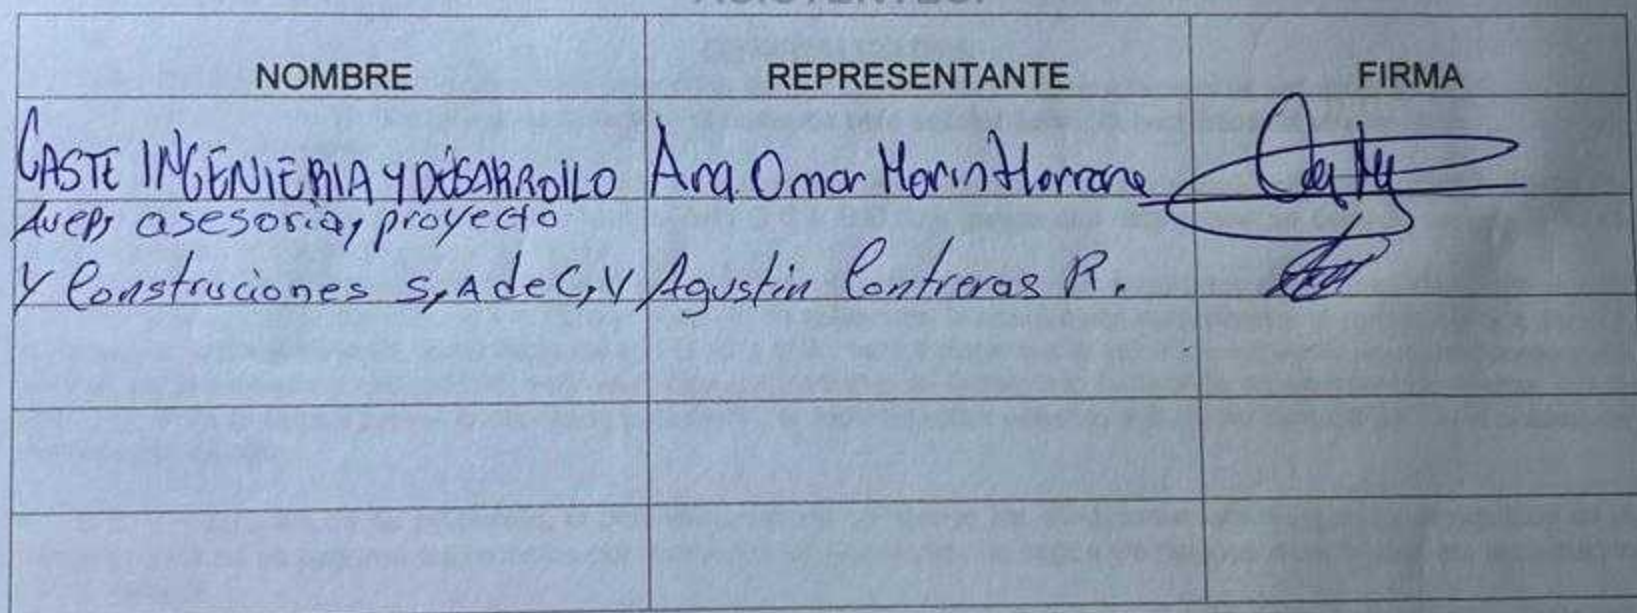 NOMBRE REPRESENTANTE FIRMA
CASTE INGENIERIA Y DESARROLLO Arq. Omar Morin Herrera
asesoria, proyecto
Y Construciones S,A de C,V Agustin Contreras R.